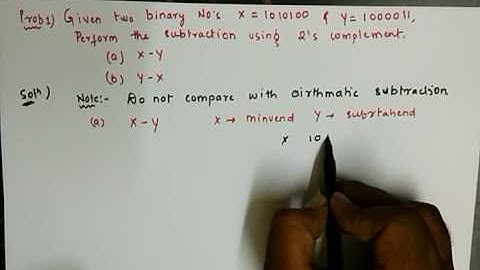 Prob1) Given two binary No's x = 1010100 & Y = 1000011,
Perform the subtraction using 2's complement.
(a) x-Y
(b) Y-x
Soln) Note:- Do not compare with airthmatic subtraction
(a) x-Y x → minuend Y → subrtahend
x 10